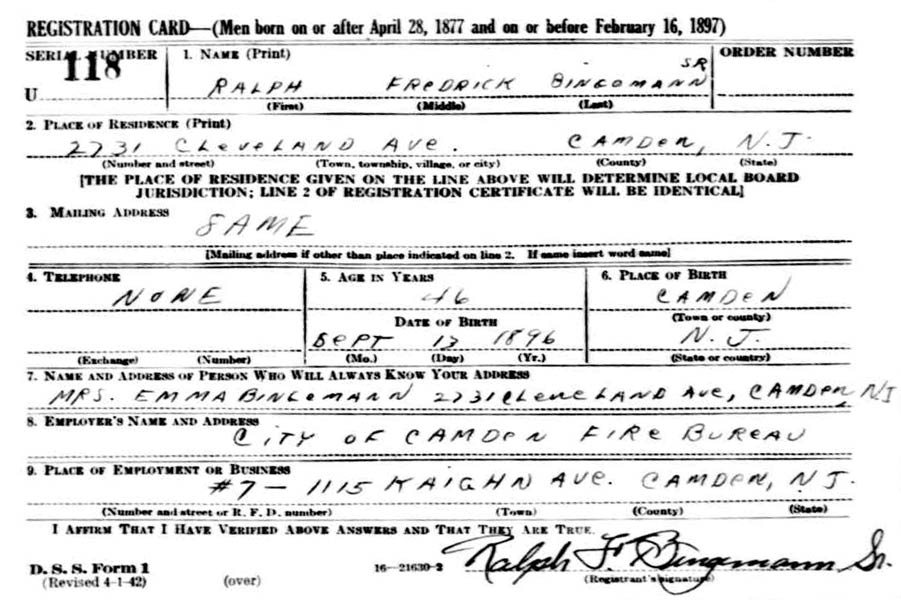 REGISTRATION CARD—(Men born on or after April 28, 1877 and on or before February 16, 1897)
SERIAL NUMBER 1. NAME (Print) ORDER NUMBER
118 SR
U RALPH FREDRICK BINGEMANN
(First) (Middle) (Last)
2. PLACE OF RESIDENCE (Print)
2731 CLEVELAND AVE. CAMDEN, N.J.
(Number and street) (Town, township, village, or city) (County) (State)
[THE PLACE OF RESIDENCE GIVEN ON THE LINE ABOVE WILL DETERMINE LOCAL BOARD
JURISDICTION; LINE 2 OF REGISTRATION CERTIFICATE WILL BE IDENTICAL]
3. MAILING ADDRESS
SAME
[Mailing address if other than place indicated on line 2. If same insert word same]
4. TELEPHONE 5. AGE IN YEARS 6. PLACE OF BIRTH
NONE 46 CAMDEN
DATE OF BIRTH (Town or county)
SEPT 13 1896 N.J.
(Exchange) (Number) (Mo.) (Day) (Yr.) (State or country)
7. NAME AND ADDRESS OF PERSON WHO WILL ALWAYS KNOW YOUR ADDRESS
MRS. EMMA BINGEMANN 2731 CLEVELAND AVE, CAMDEN NJ
8. EMPLOYER'S NAME AND ADDRESS
CITY OF CAMDEN FIRE BUREAU
9. PLACE OF EMPLOYMENT OR BUSINESS
#7 - 1115 KAIGHN AVE. CAMDEN, NJ.
(Number and street or R. F. D. number) (Town) (County) (State)
I AFFIRM THAT I HAVE VERIFIED ABOVE ANSWERS AND THAT THEY ARE TRUE.
D. S. S. Form 1 16—21630-2 Ralph F. Bingemann Sr.
(Revised 4-1-42) (over) (Registrant's signature)